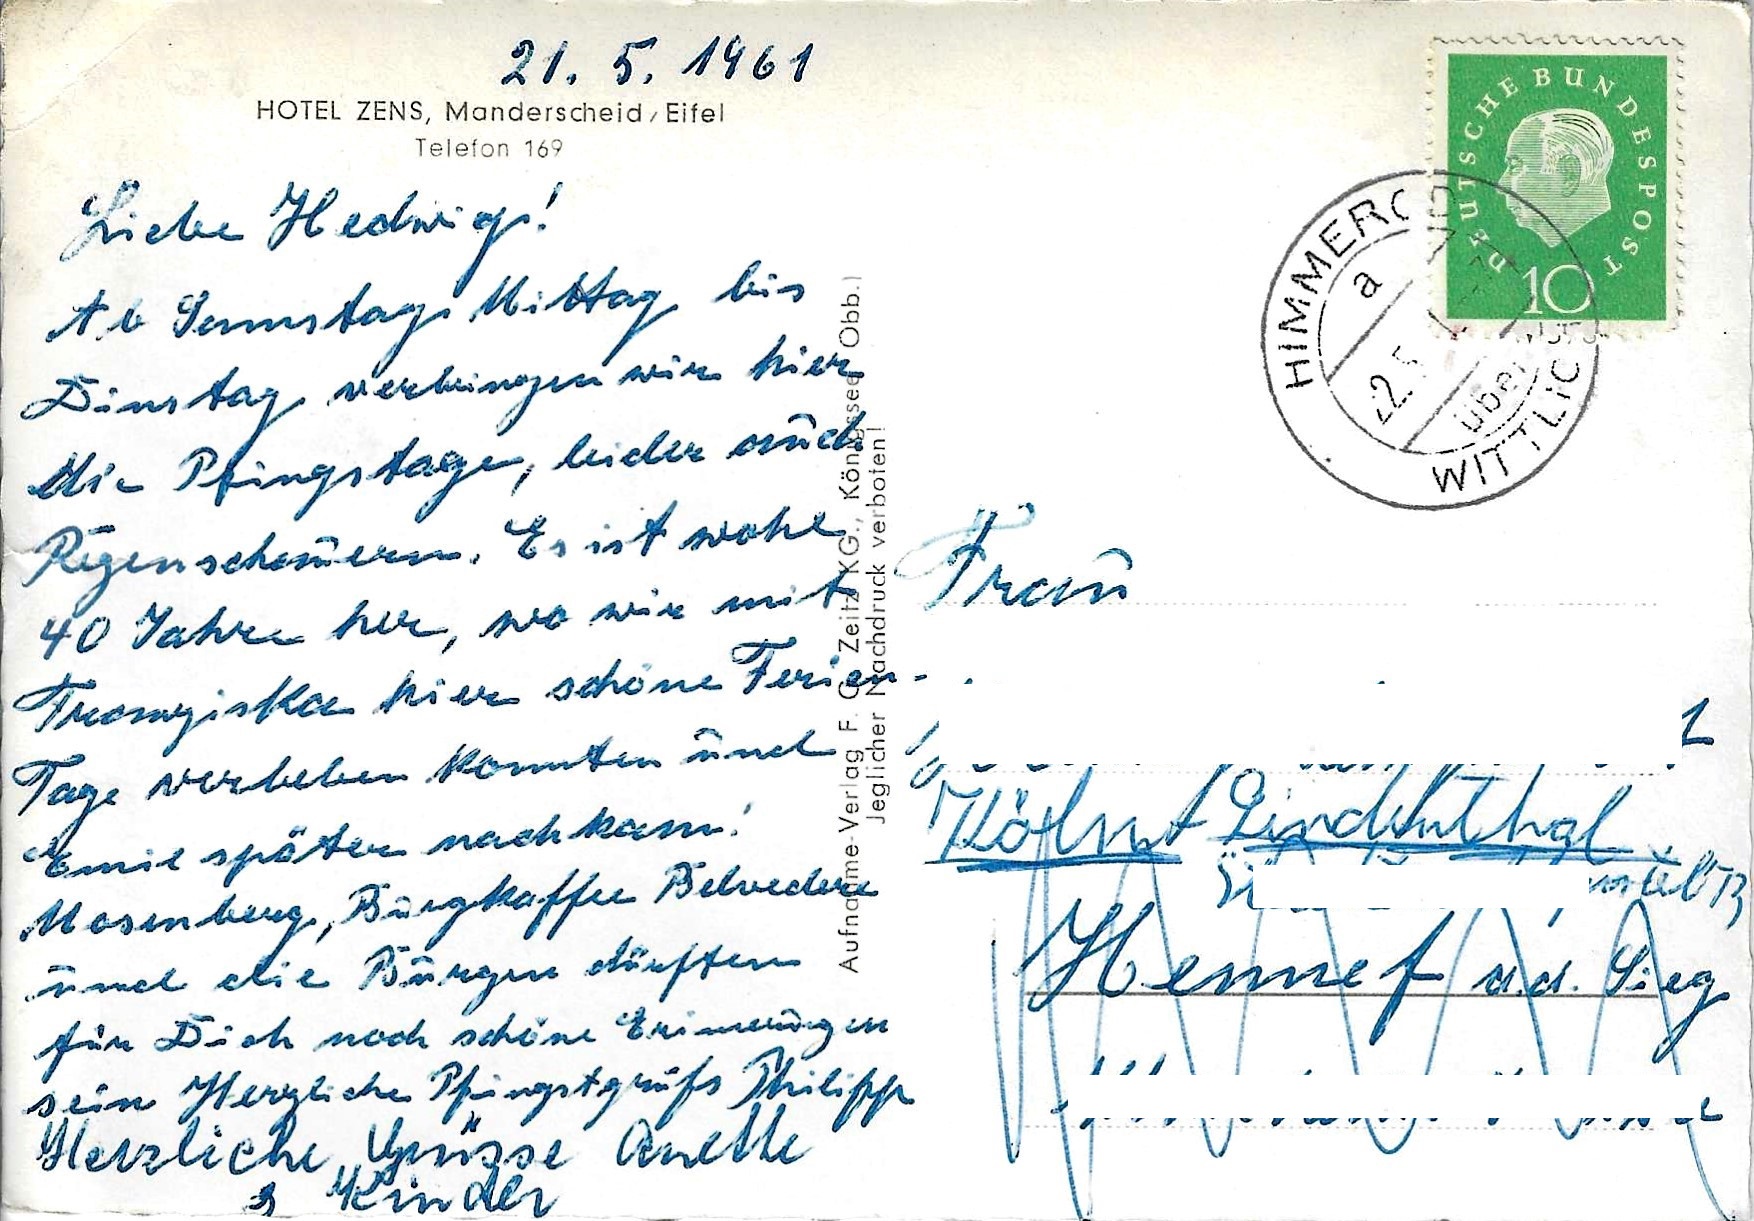 21. 5. 1961
HOTEL ZENS, Manderscheid/Eifel
Telefon 169
Liebe Hedwig!
Ab Samstag Mittag bis
Dinstag verbringen wir hier
die Pfingstage, leider auch
Regenschauern. Es ist wohl
40 Jahre her, wo wir mit
Franziska hier schöne Ferien-
Tage verleben konnten und
Emil später nachkam!
Mosenberg, Burgkaffee Belvedere
und die Burgen dürften
für Dich noch schöne Erinnerungen
sein Herzliche Pfingstgruß Philipp
Herzliche Grüsse Anette
3 Kinder
Aufnahme-Verlag F. G. Zeitz KG., Königssee Obb.)
Jeglicher Nachdruck verboten!
DEUTSCHE BUNDESPOST
10
HIMMEROD
a
22. 5
über
WITTLICH
Frau
1
Köln Lindenthal
Hennef a.d. Sieg